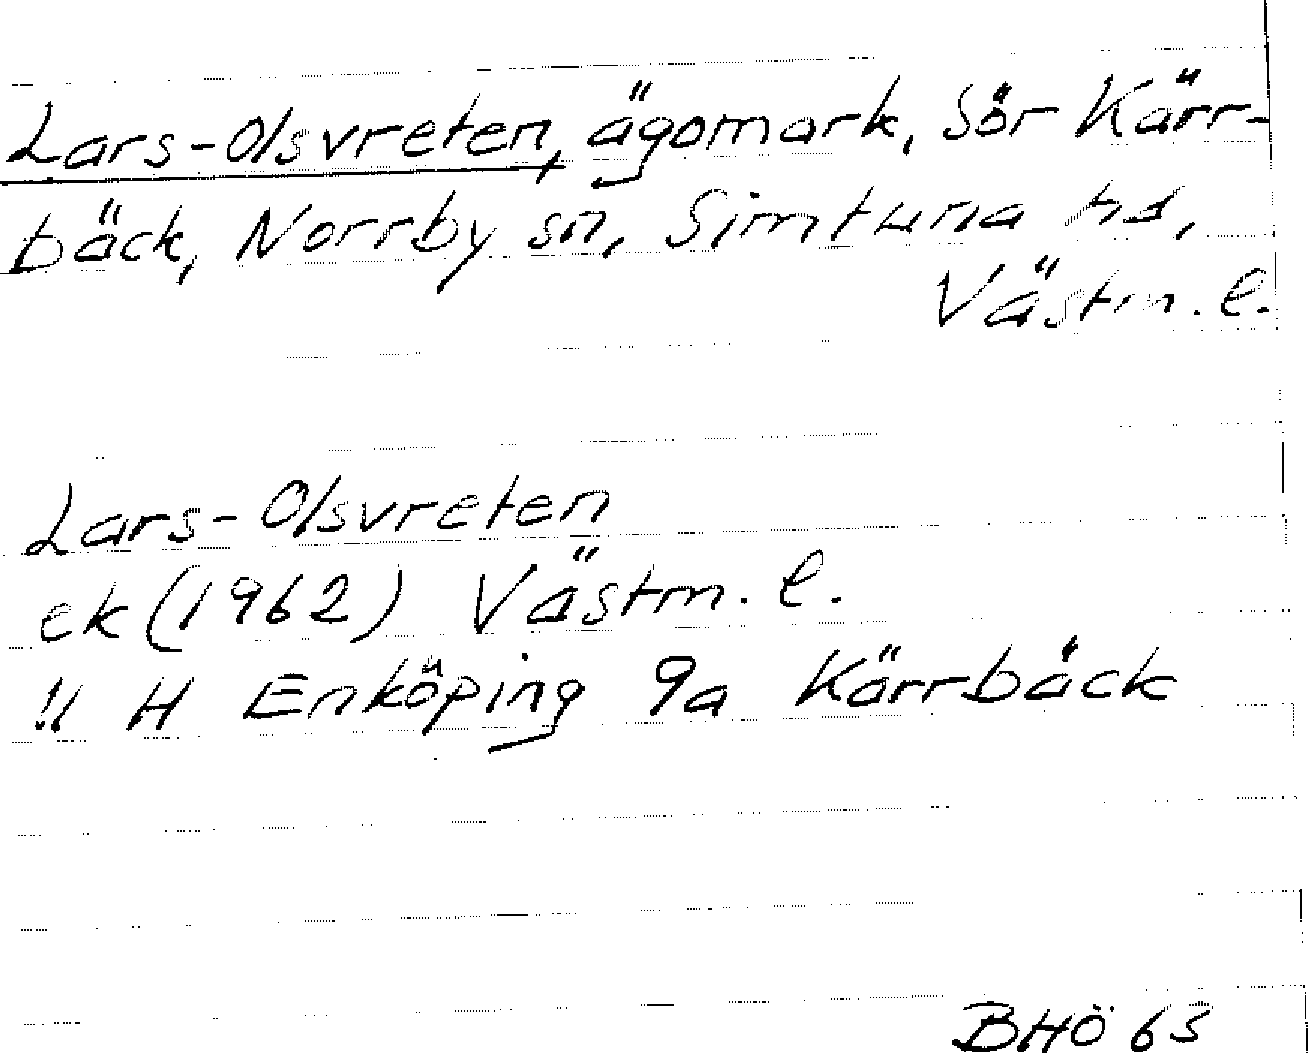 Lars-Olsvreten, ägomark, Sör Kärr-
bäck, Norrby sn, Simtuna hd,
Västm. l.
Lars-Olsvreten
ek (1962) Västm. l.
!! H Enköping 9a Kärrbäck
BHÖ 63